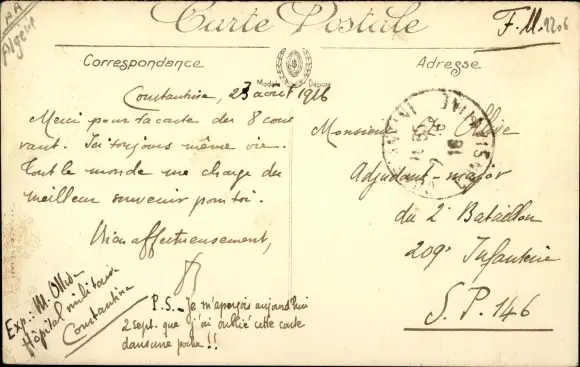 Carte Postale
F.M.
Algérie
Correspondance
Adresse
Modèle Déposé
Constantine, 23 août 1916
Merci pour ta carte du 8 cou
rant. Ici toujours même vie.
Tout le monde me charge du
meilleur souvenir pour toi.
Bien affectueusement,
P.S. - Je m'aperçois aujourd'hui
2 sept. que j'ai oublié cette carte
dans une poche!!
Exp: M. Ollive
Hôpital militaire
Constantine
Monsieur Ollive
Adjudant-major
du 2e Bataillon
209e Infanterie
S.P. 146